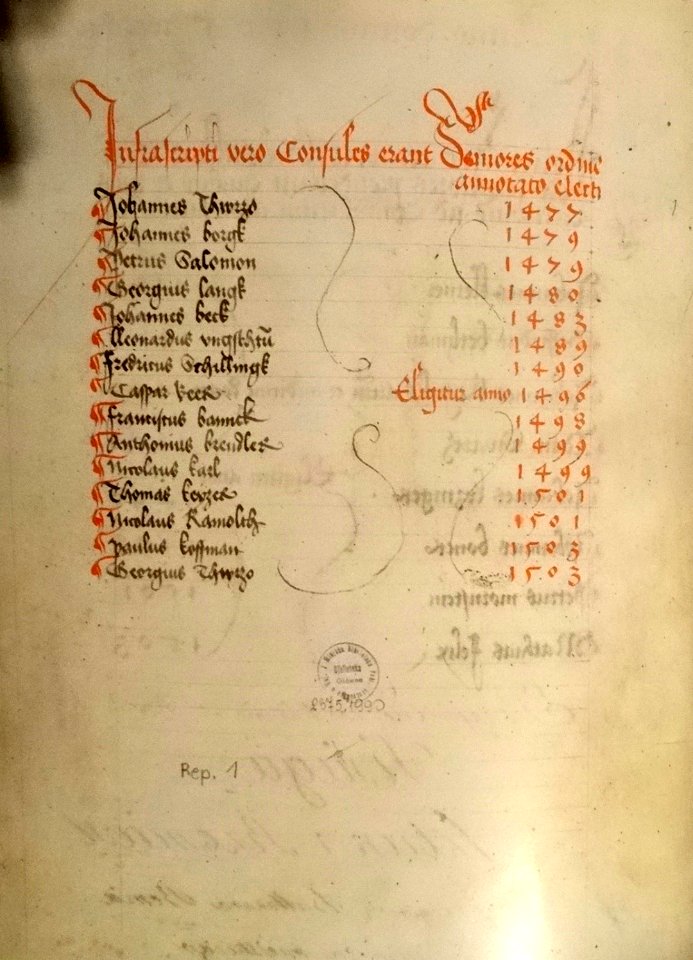 Infrascripti vero Consules erant Seniores ordine
annotato electi
Johannes Thurzo 1477
Johannes borgk 1479
Petrus Salomon 1479
Georgius langk 1480
Johannes beck 1483
Leonardus 1489
Fredricus Schillingk 1490
Caspar Beer Eligitur anno 1496
Franciscus bannck 1498
Anthonius brendler 1499
Nicolaus karl 1499
Thomas keyzer 1501
Nicolaus Ramolth 1501
paulus koffman 1503
Georgius Thurzo 1503
Biblioteka
Główna
2575/1990
Rep. 1